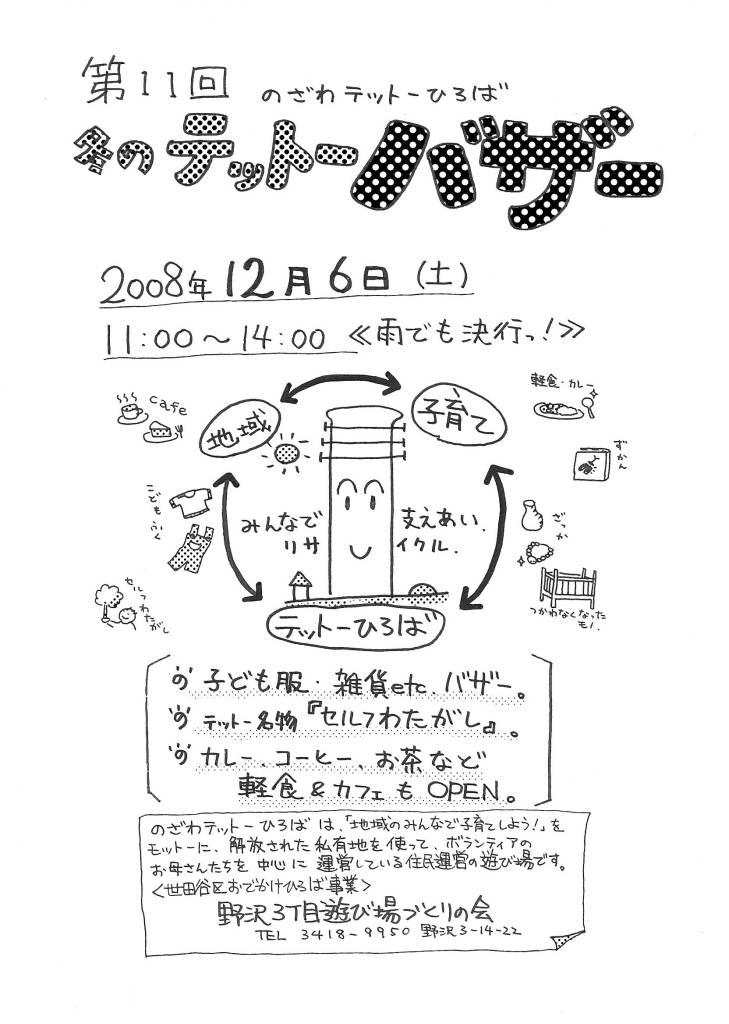 第11回 のざわテットーひろば
冬のテットーバザー
2008年12月6日(土)
11:00～14:00 ≪雨でも決行っ!≫
cafe
地域
子育て
軽食・カレー
ずかん
こどもふく
みんなで 支えあい.
リサイクル.
ざっか
セルフわたがし
つかわなくなった
モノ.
テットーひろば
子ども服・雑貨etc.バザー。
テットー名物『セルフわたがし』。
カレー、コーヒー、お茶など
軽食&カフェもOPEN。
のざわテットーひろばは、「地域のみんなで子育てしよう!」を
モットーに、解放された私有地を使って、ボランティアの
お母さんたちを中心に運営している住民運営の遊び場です。
<世田谷区おでかけひろば事業>
野沢3丁目遊び場づくりの会
TEL 3418-9950 野沢3-14-22